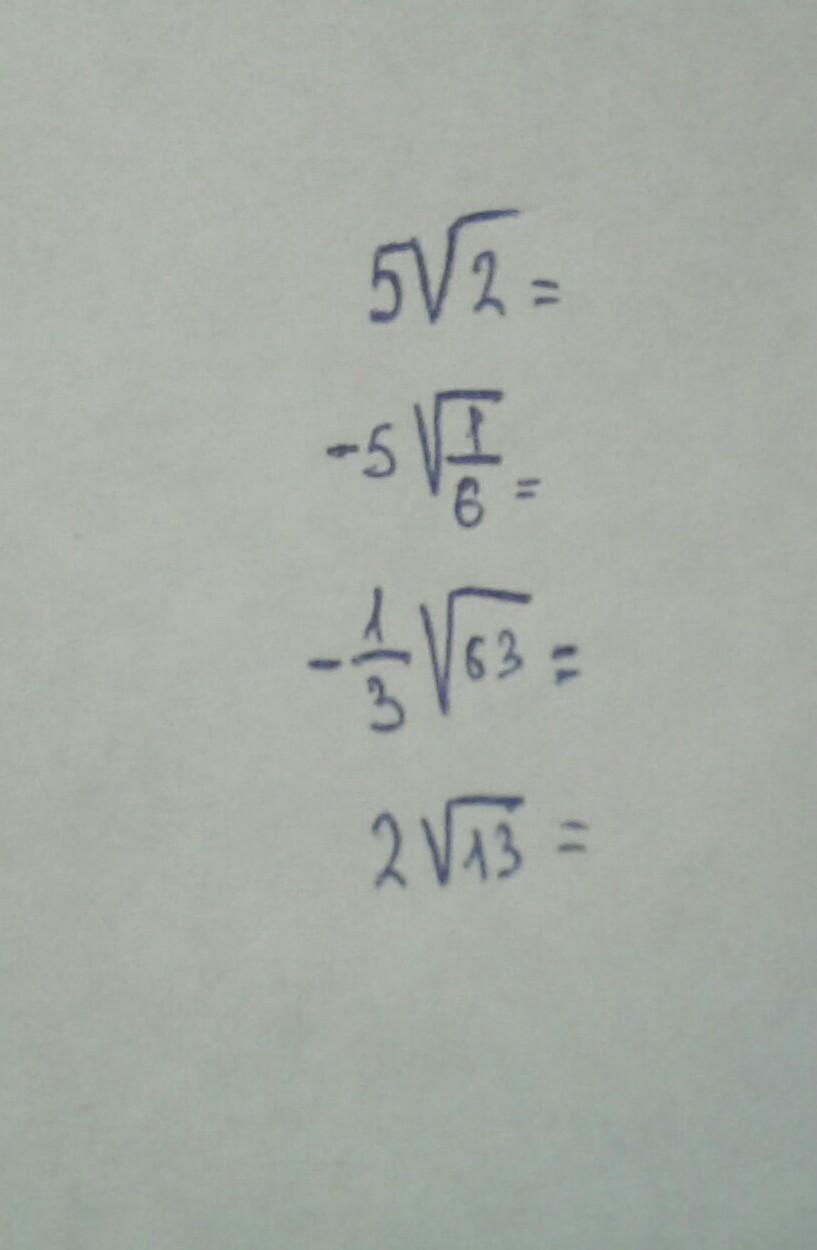 5√2 =
-5√(1/6) =
-1/3 √63 =
2√13 =